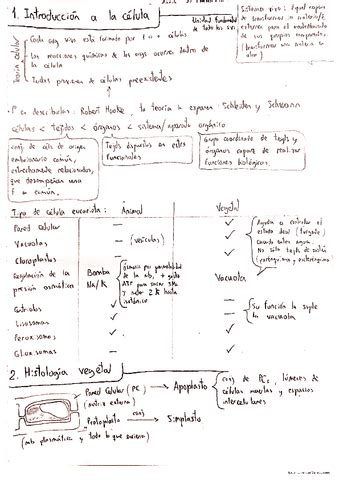 1. Introducción a la célula
Unidad fundamental de todo los ssvv
Sistema vivo: Aquel capaz
de transformar la materia/E
externa para el mantenimiento
de sus propios esquemas.
(transformar una materia en
otra)
Teoría celular
- Cada ser vivo está formado por 1 o + células
- Las reacciones químicas de los orgs ocurren dentro de
la célula
- Todas provienen de células preexistentes
1º en describirlas: Robert Hooke, la teoría la exponen Schleiden y Schwann
células < tejidos < órganos < sistema/aparato orgánico
conj. de céls de origen
embrionario común,
estrechamente relacionadas,
que desempeñan una
F en común.
Tejidos dispuestos en estes
funcionales
Grupo coordinado de tejids y
órganos capaces de realizar
funciones biológicas.
Tipo de célula eucariota: Animal Vegetal
Pared celular — ✓
Vacuolas — (vesículas) ✓
Cloroplastos — ✓
Regulación de la
presión osmótica
Bomba
Na/K
ósmosis por permeabilidad
de la mb, + gasto
ATP para sacar 3Na
y meter 2K hasta
isotónico
Vacuola
Ayuda a controlar el
estado ideal (turgente)
cuando entra agua.
No sólo tejds de sostén
Centriolos ✓ —
Lisosomas ✓ —
Su función la suple
la vacuola
Peroxisomas ✓ ✓
Glioxisomas — ✓
2. Histología vegetal
Pared Celular (PC) → Apoplasto
(matriz externa)
conj. de PCs, lúmenes de
células muertas y espacios
intercelulares
Protoplasto conj → Simplasto
(mb plasmática y todo lo que encierra)